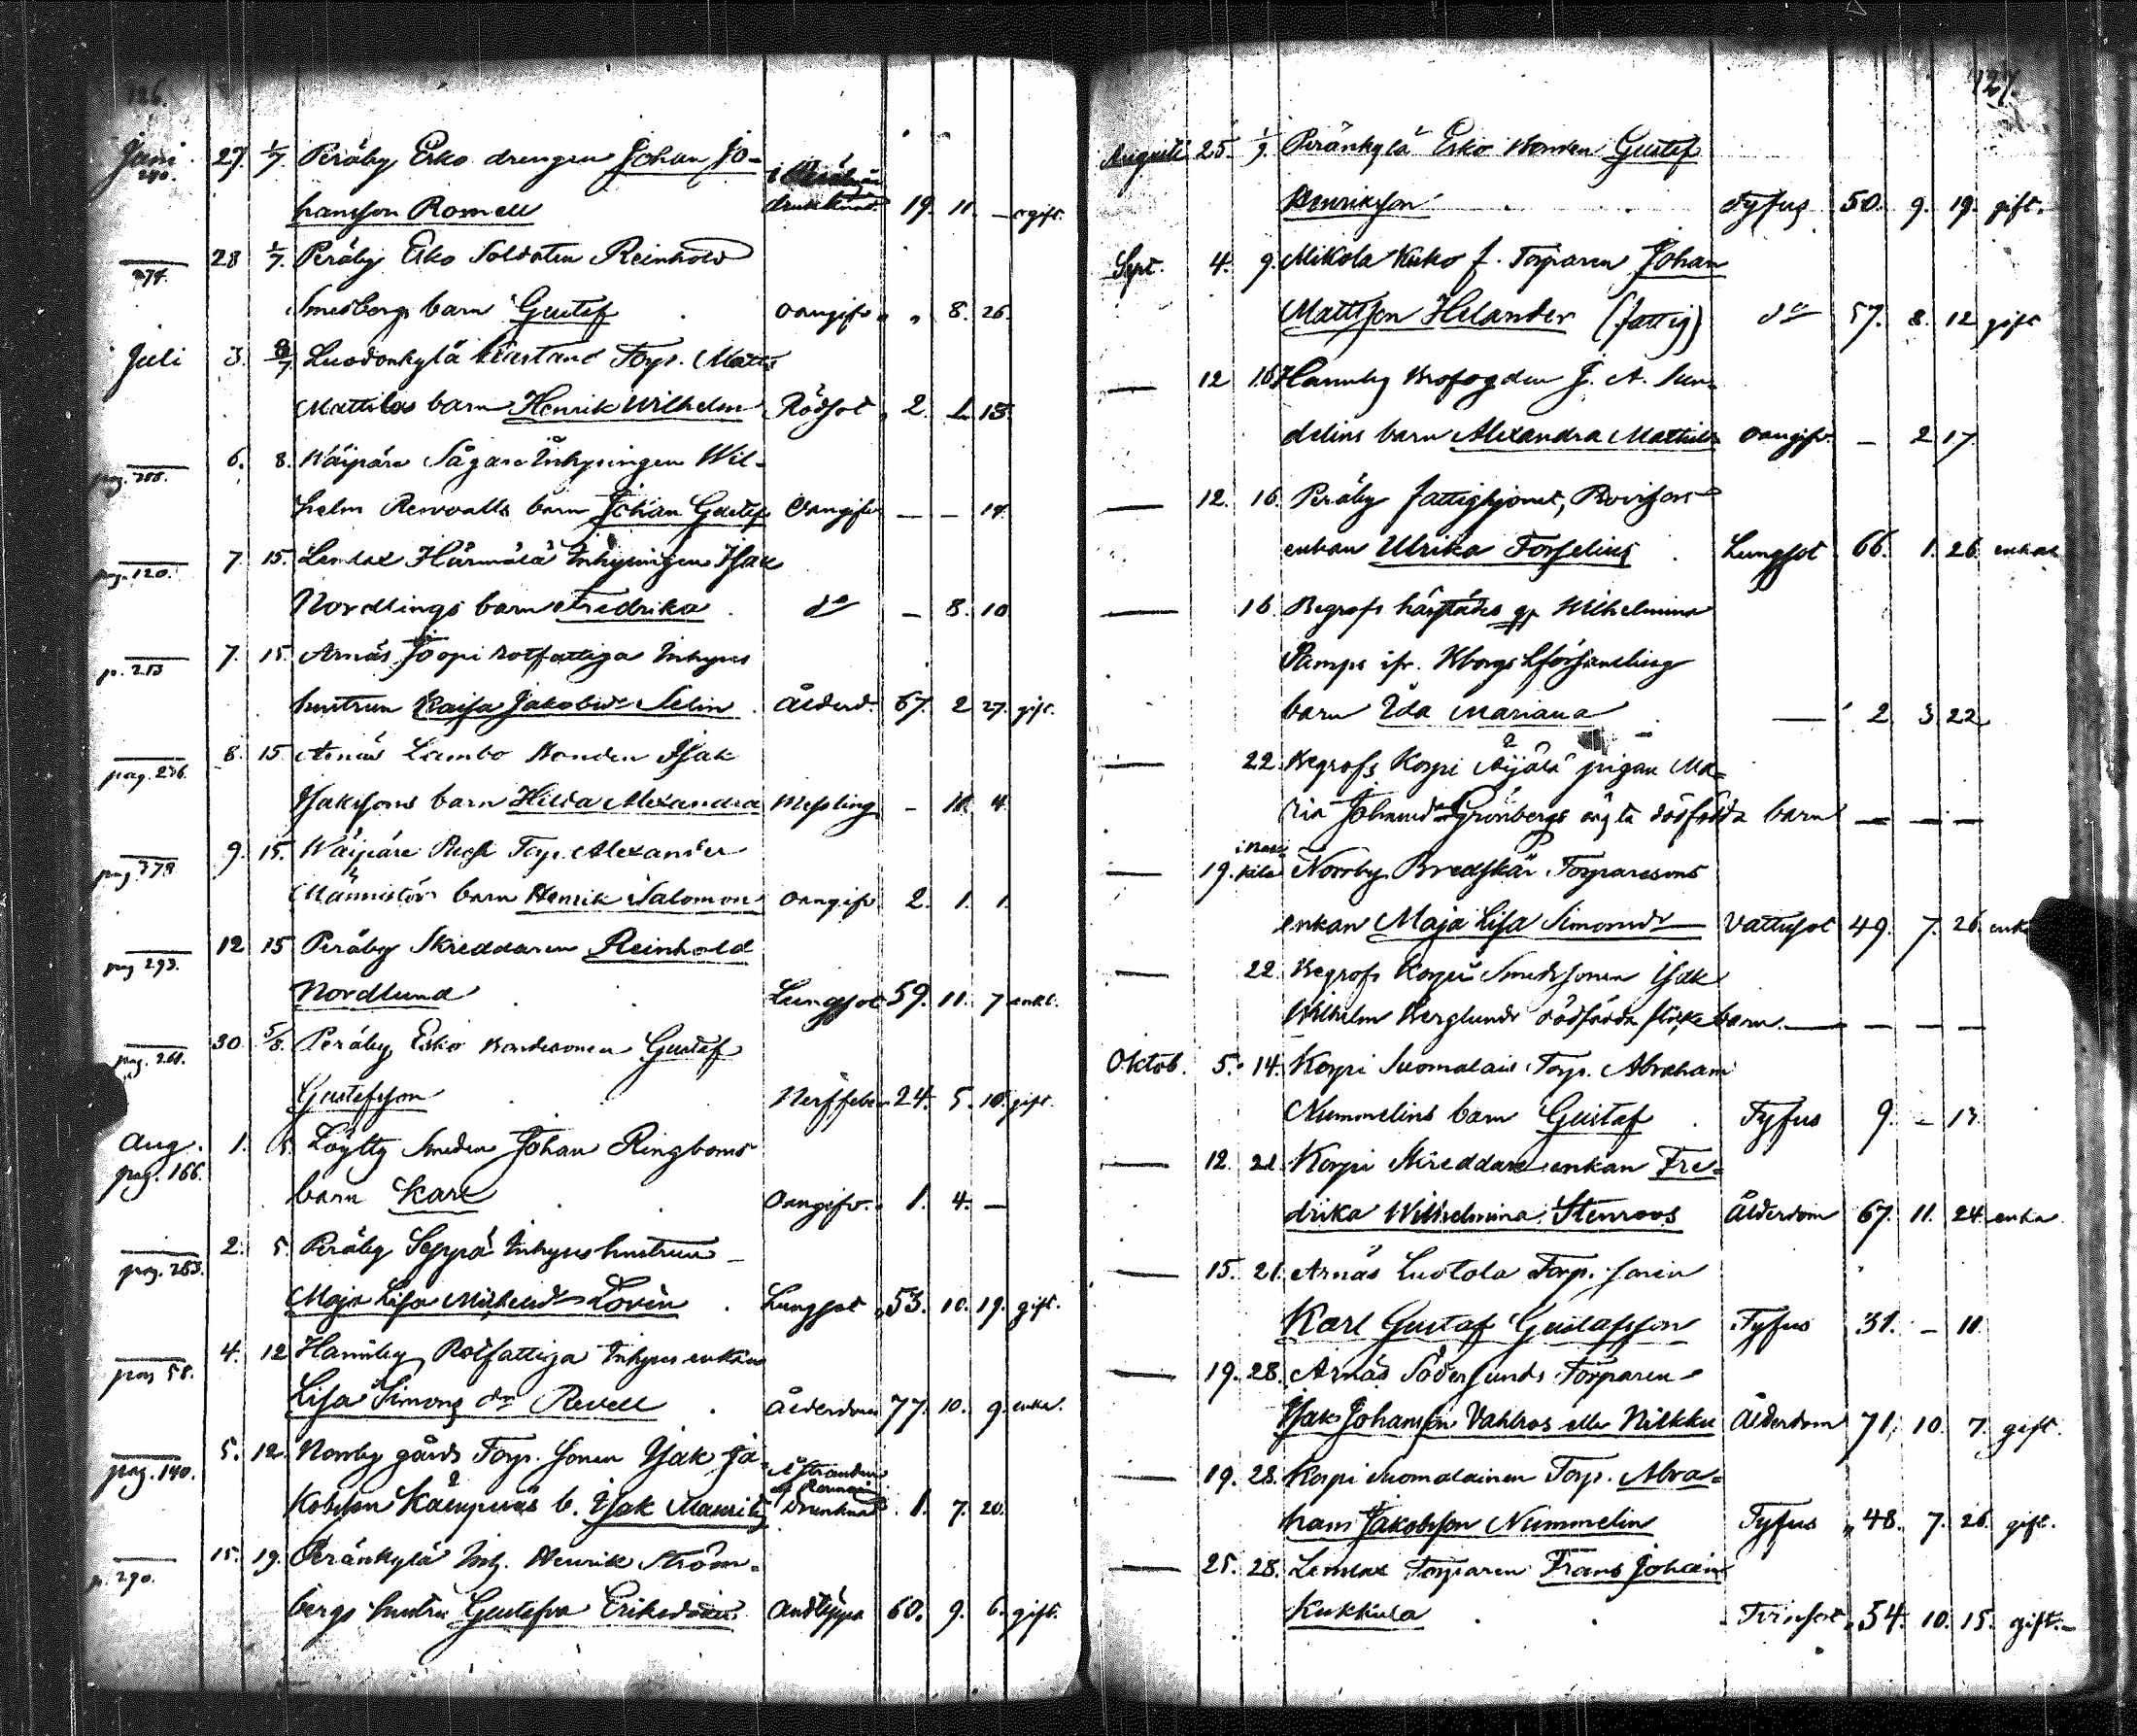 126.
Juni 27. 1/7. Peräby Esko drengen Johan Jo-
240.
hansson Romell drunknad. 19. 11. — ogift.
28 1/7. Peräby Esko Soldaten Reinhold
274.
Smedbergs barn Gustaf oangifv. „ 8. 26.
Juli 3. 8/7 Luodonkylä Torp. Matts
Mattilas barn Henrik Wilhelm Rödsot 2. 1. 13.
6. 8. Wäipäre Sågare Inhysingen Wil-
pag. 266.
helm Renvalls barn Johan Gustaf Oangifv — — 14.
7. 15. Lemlax Härmälä Inhysingen Isak
pag. 120.
Nordlings barn Fredrika do — 8. 10
7. 15. Arnäs Joopi rotfattiga Inhyses
p. 213
hustrun Kaisa Jakobsdr Selin Ålderd. 67. 2 27. gift.
8. 15. Arnäs Lambo Bonden Isak
pag. 236.
Isakssons barn Hilda Alexandra Messling — 10. 4.
9. 15. Wäipäre Torp. Alexander
pag. 378
Männistös barn Henrik Salomon oangifv 2. 1. 1.
12 15 Peräby Skreddaren Reinhold
pag 293.
Nordlund Lungsot 59. 11. 7 enkl.
30 5/8. Peräby Esko Bondesonen Gustaf
pag. 261.
Gustafsson Nerffeber 24. 5. 10. gift.
Aug. 1. 5. Löyltty Smeden Johan Ringboms
pag. 166.
barn Karl oangifv. 1. 4. —
2. 5. Peräby Seppä Inhyses hustrun
pag. 283.
Maja Lisa Michelsdr Lovén Lungsot 53. 10. 19. gift.
4. 12 Hannby Rotfattiga Inhyses enkan
pag 58.
Lisa Simons dr Revell Ålderdom 77. 10. 9. enka.
5. 12. Norrby gårds Torp. sonen Isak Ja-
pag. 140.
kobsson Kämpinäs b. Isak Mauritz Drunknad 1. 7. 20.
15. 19. Peränkylä Inh. Henrik Ström-
p. 290.
bergs hustru Gustafva Eriksdotter Andtäppa 60. 9. 6. gift.
127.
Augusti 25. 1/9. Peränkylä Esko Bonden Gustaf
Henriksson Tyfus 50. 9. 19. gift.
Sept. 4. 9. Mikola Kuko f. Torparen Johan
Mattsson Helander (fattig) do 57. 8. 12 gift
12 16. Hannby Brofogden J. A. Sun-
delins barn Alexandra Mathilda oangifv. — 2 17.
12. 16. Peräby fattighjonet, Provisors
enkan Ulrika Forselius Lungsot 66. 1. 26. enka
16. Begrofs härstädes Wilhelmina
barn Ida Mariana — 2 3 22
22. Begrofs Korpi Äijälä pigan Ma-
ria Johansdr Grönbergs oägta dödfödda barn — — —
19. Norrby Bredskär Torparesons
enkan Maja Lisa Simonsdr Vattusot 49. 7. 26 enka
22. Begrofs Korpi Smedssonen Isak
Wilhelm Berglunds dödfödda flicke barn. — — — —
Oktob. 5. 14. Korpi Suomalais Torp. Abraham
Nummelins barn Gustaf Tyfus 9. — 13.
12. 21. Korpi Skreddare enkan Fre-
drika Wilhelmina Stenroos Ålderdom 67. 11. 24. enka
15. 21. Arnäs Luotola Torp. sonen
Karl Gustaf Gustafsson Tyfus 31. — 11.
19. 28. Arnäs Södersunds Torparen
Isak Johansson Vahlros eller Nilkku Ålderdom 71. 10. 7. gift.
19. 28. Korpi Suomalainen Torp. Abra-
ham Jakobsson Nummelin Tyfus 48. 7. 26. gift.
25. 28. Lemlax Torparen Frans Johan
Kukkula Tvinsot 54. 10. 15. gift.